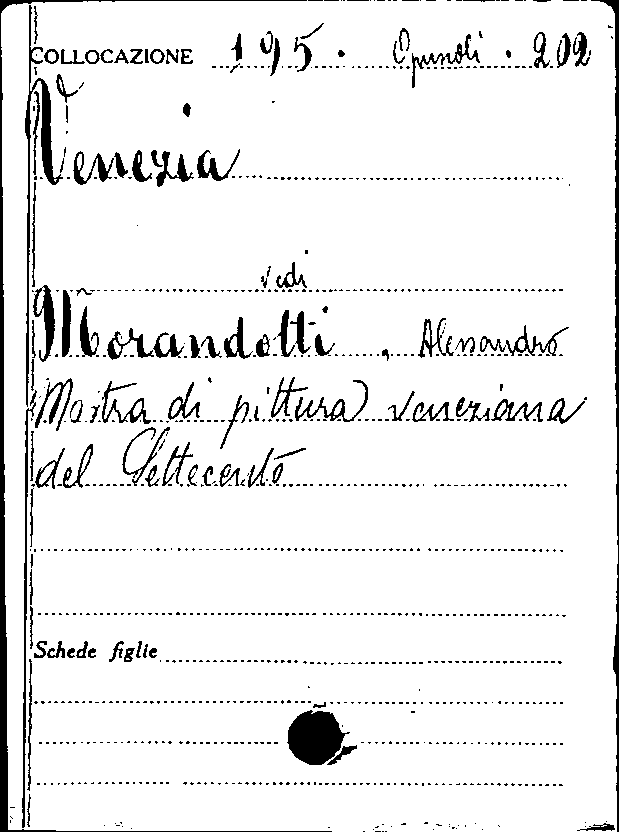 COLLOCAZIONE 195. Opuscoli. 202
Venezia
vedi
Morandotti, Alessandro
Mostra di pittura veneziana
del Settecento
Schede figlie